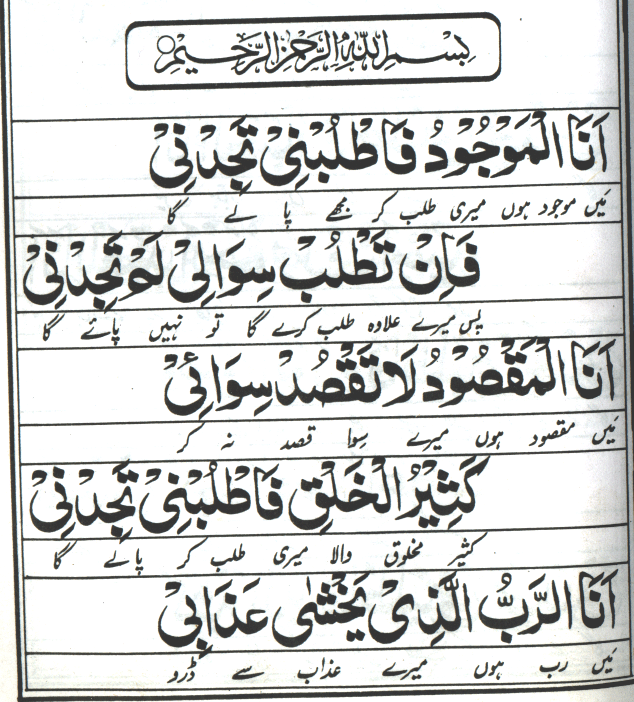 بِسْمِ اللهِ الرَّحْمٰنِ الرَّحِيْمِ
اَنَا الْمَوْجُوْدُ فَاطْلُبْنِیْ تَجِدْنِیْ
میں موجود ہوں میری طلب کر مجھے پا لے گا
فَاِنْ تَطْلُبْ سِوَالِیْ لَمْ تَجِدْنِیْ
پس میرے علاوہ طلب کرے گا تو نہیں پائے گا
اَنَا الْمَقْصُوْدُ لَا تَقْصُدْ سِوَائِیْ
میں مقصود ہوں میرے سوا قصد نہ کر
كَثِيْرُ الْخَلْقِ فَاطْلُبْنِیْ تَجِدْنِیْ
کثیر مخلوق والا میری طلب کر پالے گا
اَنَا الرَّبُّ الَّذِیْ يَخْشٰی عَذَابِیْ
میں رب ہوں میرے عذاب سے ڈرو